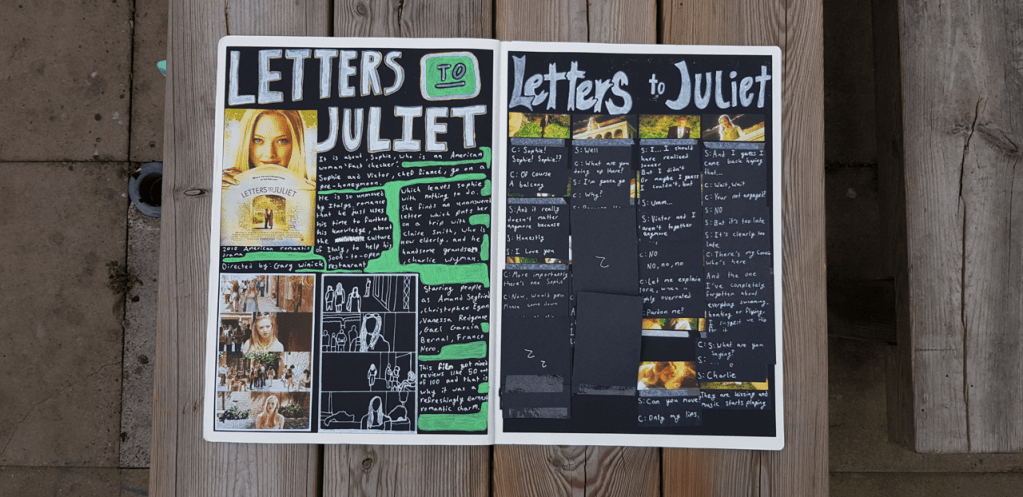 LETTERS TO
JULIET
LETTERS TO JULIET
It is about, Sophie, who is an American
woman "fact checker."
Sophie and Victor, chef fiancé, go on a
pre-honeymoon.
He is so unmoved
by Italys, romance
that he just uses
his time to further
his knowledge, about
the culture
of Italy, to help his
soon-to-open
restaurant
which leaves Sophie
with nothing to do.
She finds an unanswered
letter which puts her
on a trip with
Claire Smith, who is
now elderly, and he
handsome grandson
charlie wyman.
2010 American romantic
drama
Directed by: Gary Winick
Starring people
as Amand Seyfried
,Christopher Egan
,Vanessa Redgrave
,Gael Garcia
Bernal, Franco
Nero.
This film got mixed
reviews like 50 out
of 100 and that is
why it was a
refreshingly earnest
romantic charm.
Letters to Juliet
C: Sophie!
Sophie! Sophie!?
C: Of course
A balcony
S: And it really
doesn't matter
anymore because
S: Honestly
S: I Love you
C: More importantly
there's one Sophie
C: Now, would you
Please come down
S: Well
C: What are you
doing up there?
S: I'm gonna go
C: Why?
S: I... I should
have realised
sooner
But I didn't
Or maybe I guess
I couldn't, but
S: Umm...
S: Victor and I
aren't together
anymore
C: NO
No, no, no
C: Let me explain
overrated
S: Pardon me?
S: Can you move?
C: Only my lips.
S: And I guess I
came back hoping
that...
C: Wait, wait
C: Your not engaged?
S: NO
S: But it's too late.
S: It's clearly too
late
C: There's my Cousin
who's here
And the one
I've completely
forgotten about
everyday swimming,
boating or flying.
C: S: What are you
saying?
S: Charlie
They are kissing and
music starts playing